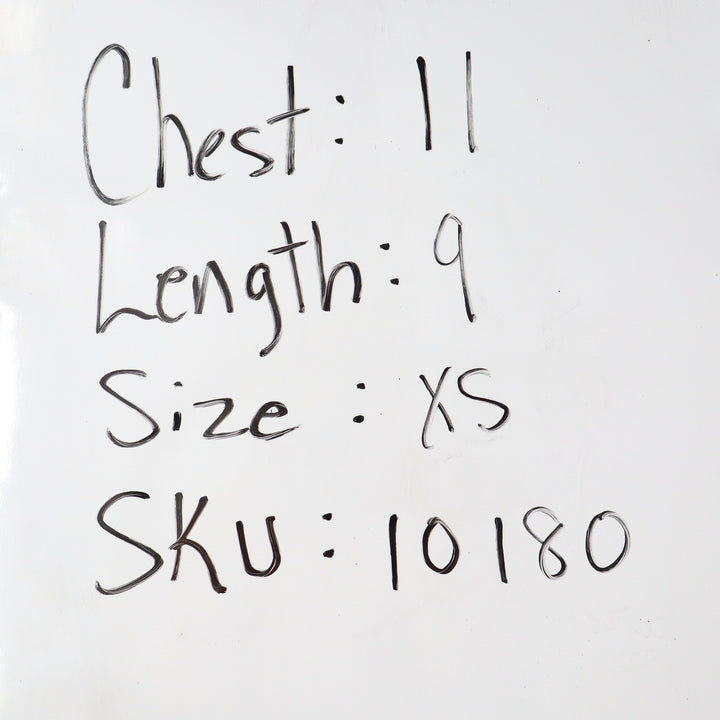 Chest: 11
Length: 9
Size : XS
SKU : 10180